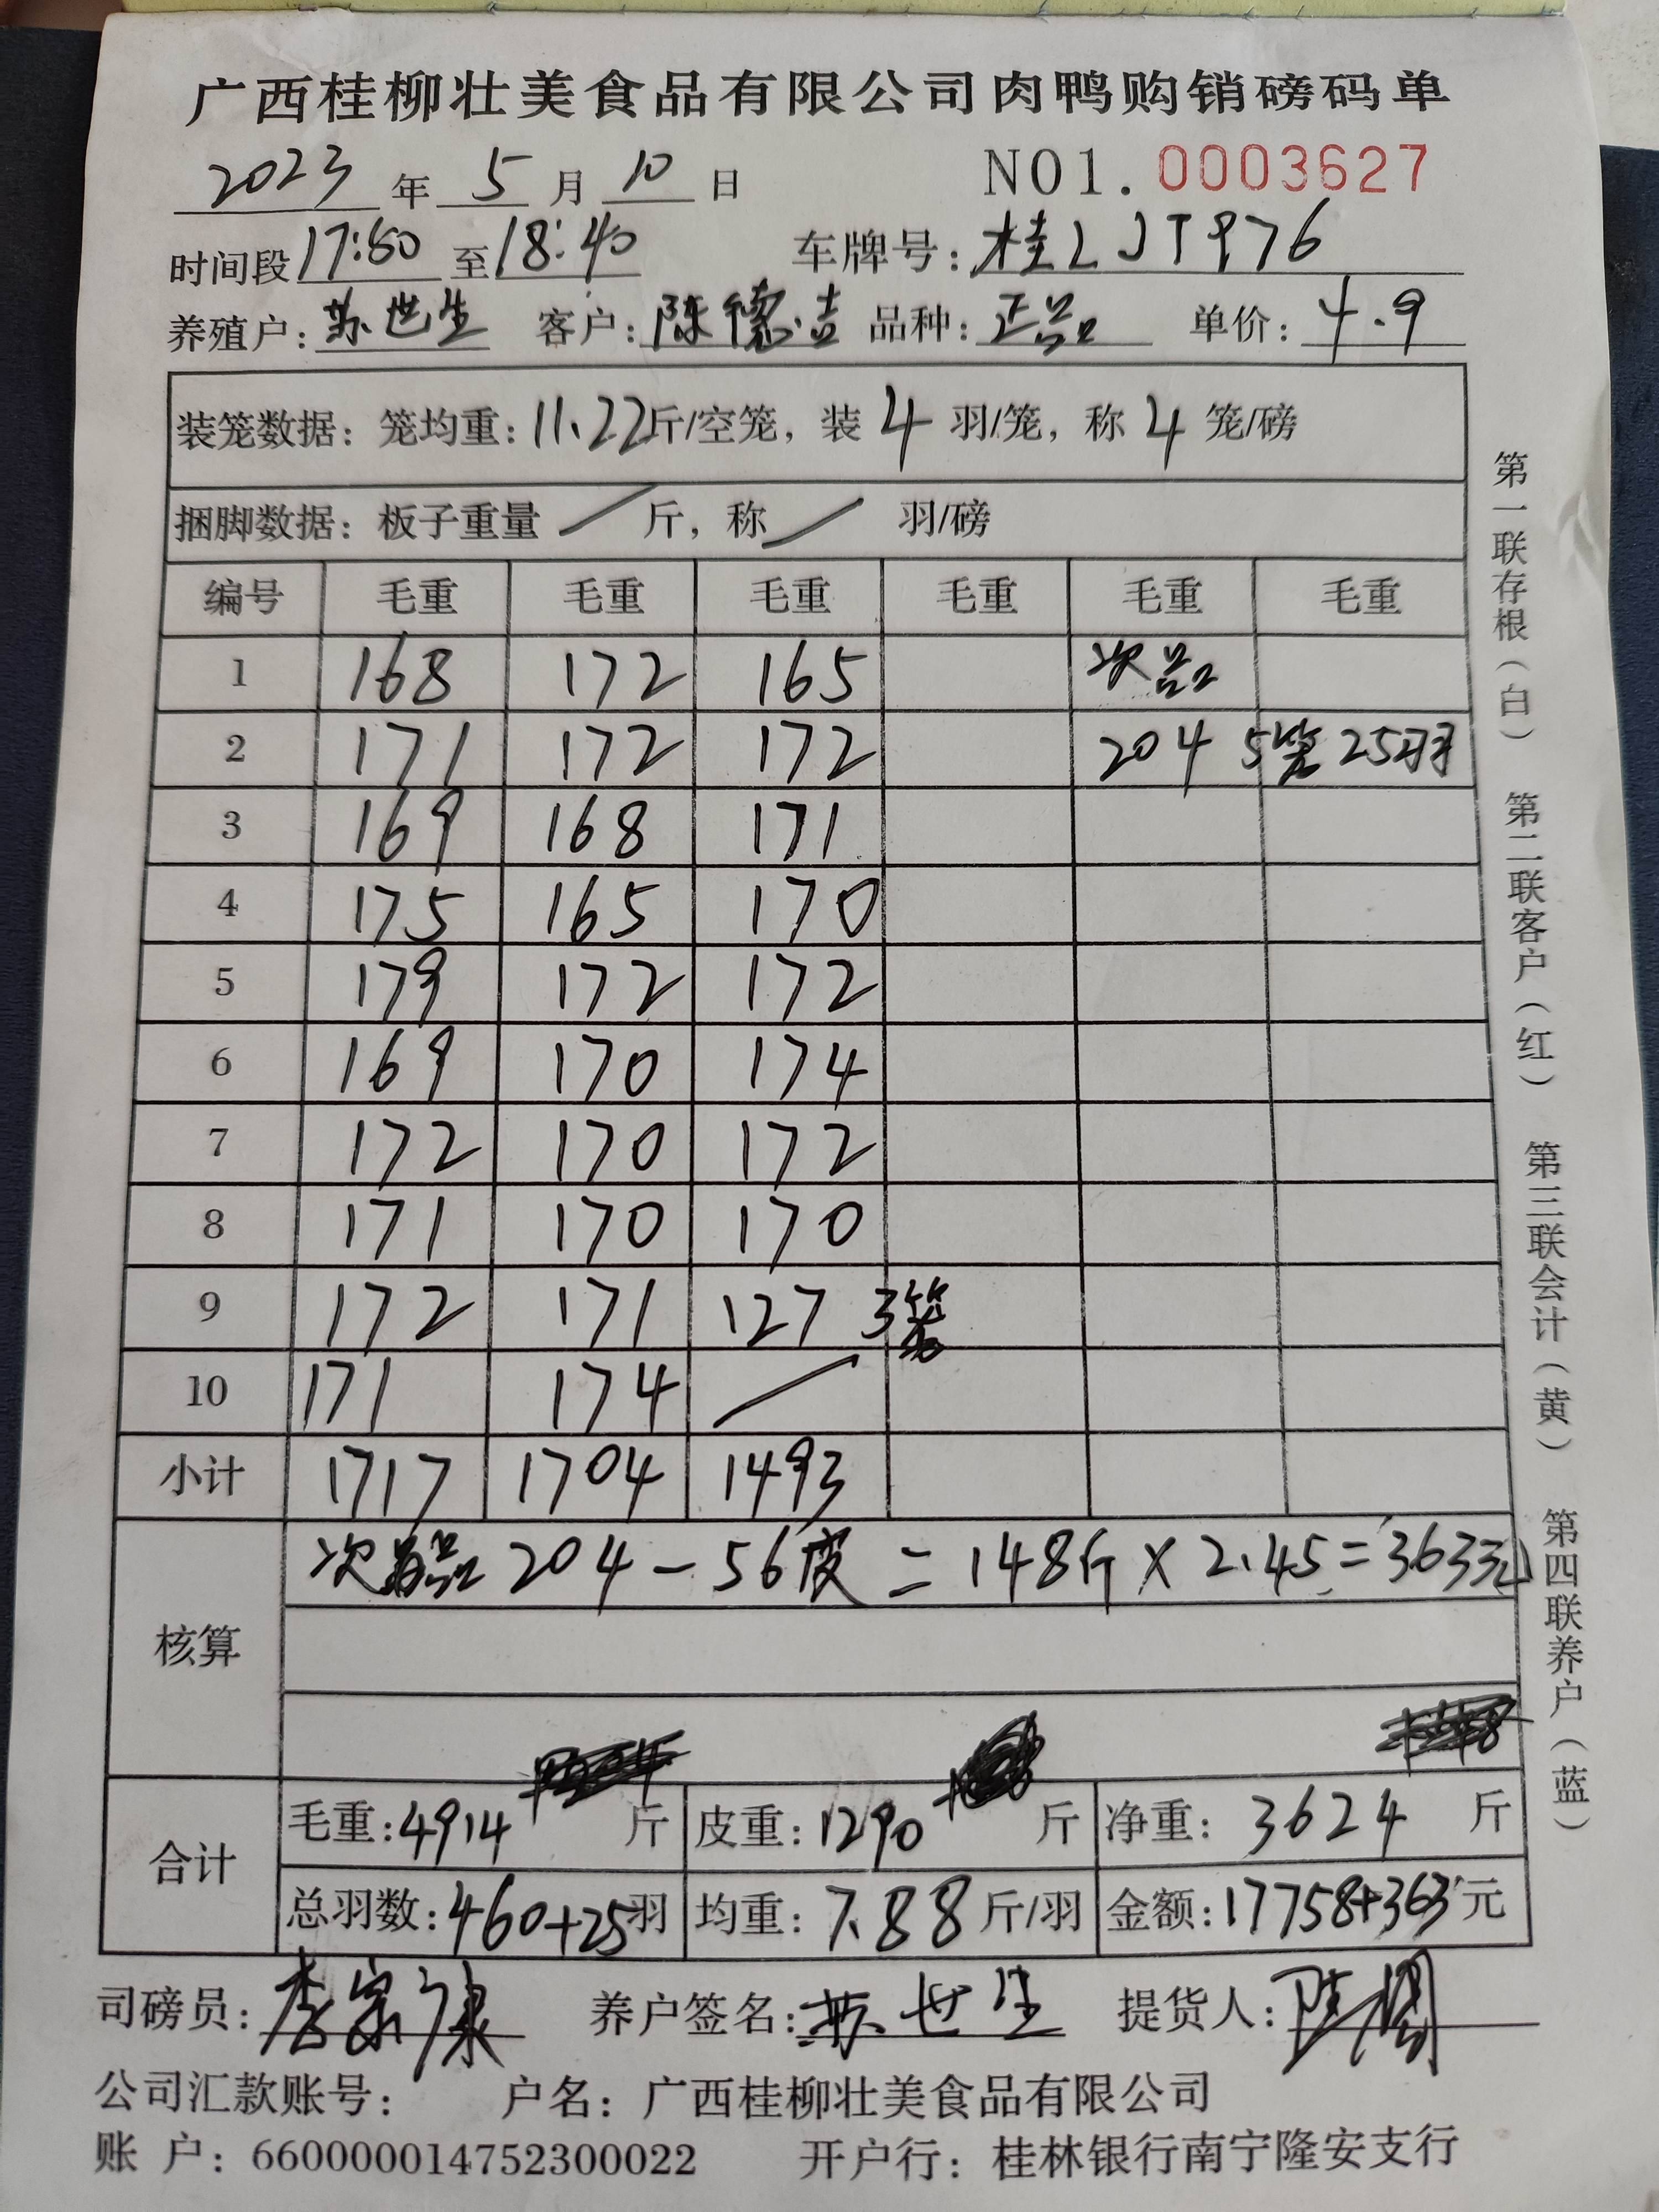 广西桂柳壮美食品有限公司肉鸭购销磅码单
2023 年 5 月 10 日 NO1. 0003627
时间段 17:50 至 18:40 车牌号: 桂LJT976
养殖户: 苏世生 客户: 陈德 品种: 正品 单价: 4.9
装笼数据: 笼均重: 11.22斤/空笼, 装 4 羽/笼, 称 4 笼/磅
捆脚数据: 板子重量 / 斤, 称 / 羽/磅
编号 毛重 毛重 毛重 毛重 毛重 毛重
1 168 172 165 次品
2 171 172 172 204 5笼 25羽
3 169 168 171
4 175 165 170
5 179 172 172
6 169 170 174
7 172 170 172
8 171 170 170
9 172 171 127 3笼
10 171 174 /
小计 1717 1704 1493
核算
次品 204 - 56皮 = 148斤 × 2.45 = 363元
合计
毛重: 4914 斤 皮重: 1290 斤 净重: 3624 斤
总羽数: 460+25羽 均重: 7.88 斤/羽 金额: 17758+363 元
司磅员: 李宗康 养户签名: 苏世生 提货人:
公司汇款账号: 户名: 广西桂柳壮美食品有限公司
账 户: 660000014752300022 开户行: 桂林银行南宁隆安支行
第一联存根(白) 第二联客户(红) 第三联会计(黄) 第四联养户(蓝)